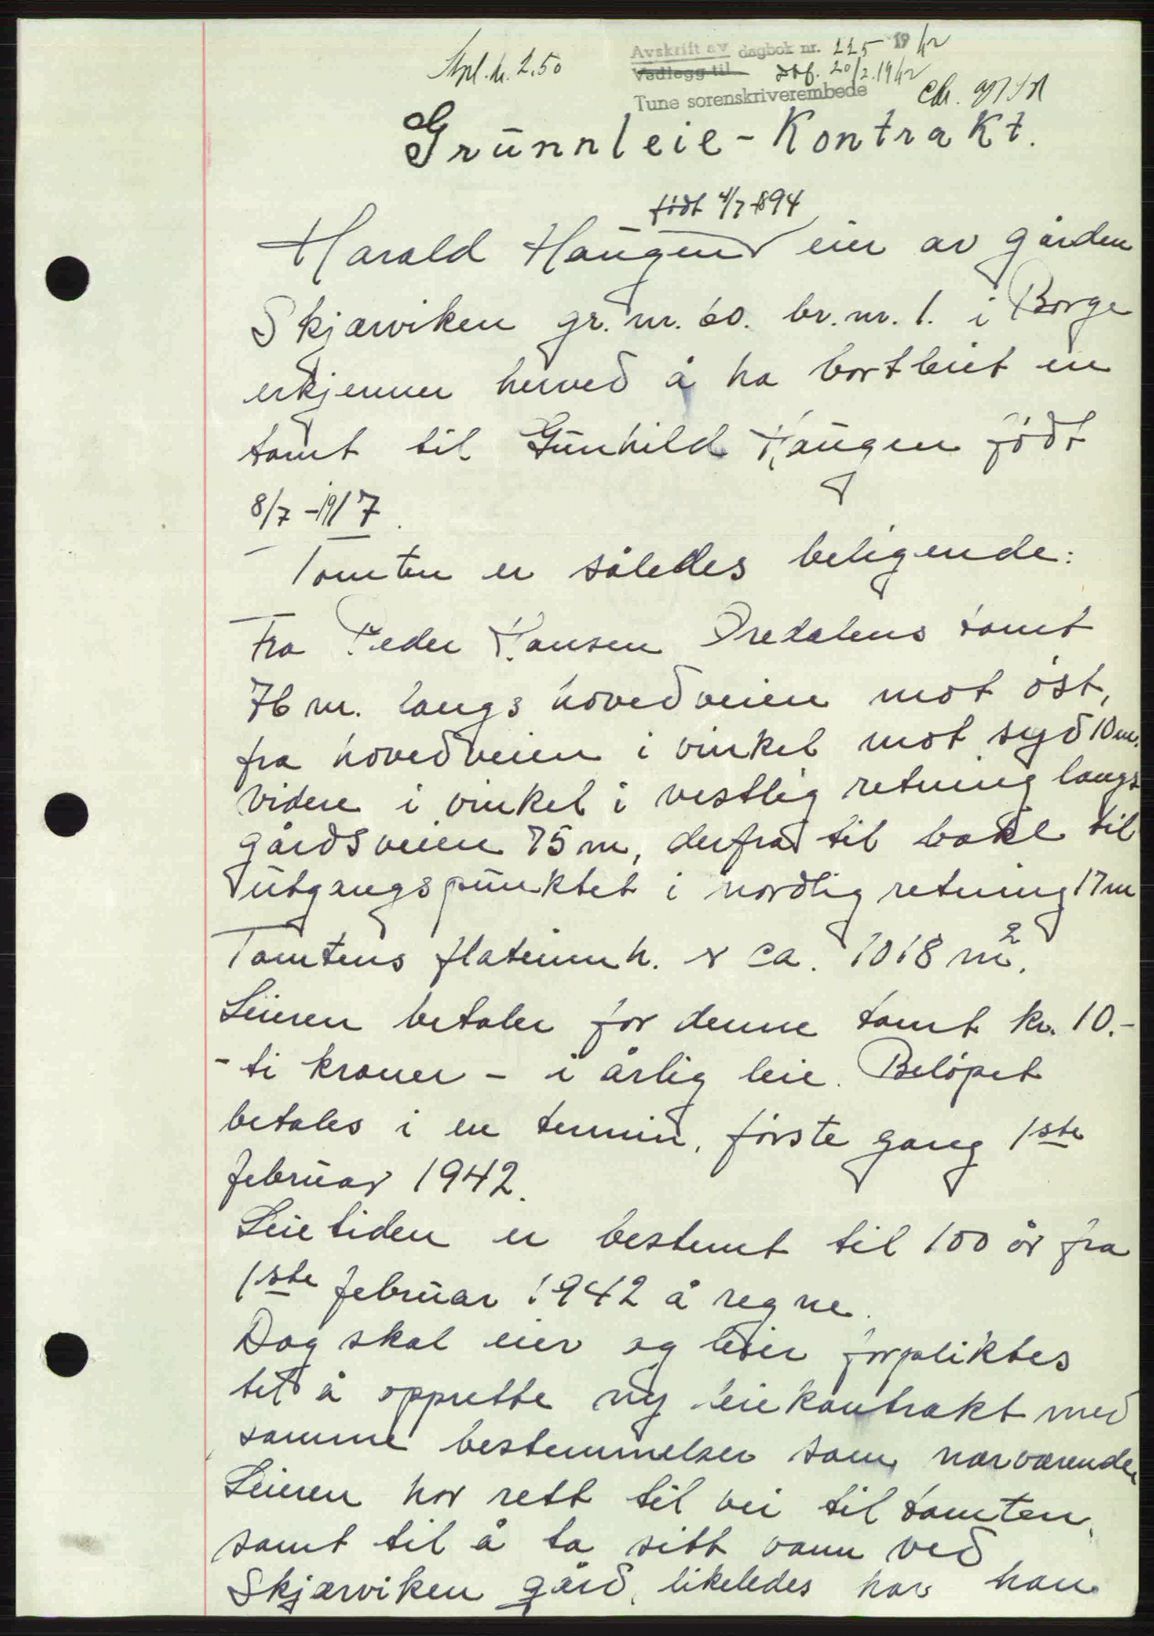 Stpl. kr. 2.50
Avskrift av dagbok nr. 225 1942
Vedlegg til dbf. 20/2.1942
Tune sorenskriverembede
Grunnleie-Kontrakt.
født 4/7-1894
Harald Haugen eier av gården
Skjærviken gr. nr. 60. br. nr. 1. i Borge
erkjenner herved å ha bortleiet en
tomt til Gunhild Haugen født
8/7-1917.
Tomten er således beligende:
Fra Peder Hansen Øredalens tomt
76 m. langs hovedveien mot øst,
fra hovedveien i vinkel mot syd 10 m.
videre i vinkel i vestlig retning langs
gårdsveien 75 m, derfra til bake til
utgangspunktet i nordlig retning 17 m
Tomtens flateinnh. er ca. 1018 m².
Leieren betaler for denne tomt kr. 10.-
- ti kroner - i årlig leie. Beløpet
betales i en termin, første gang 1ste
februar 1942.
Leietiden er bestemt til 100 år fra
1ste februar 1942 å regne.
Dog skal eier og leier forpliktes
til å opprette ny leiekontrakt med
samme bestemmelser som nærværende
Leieren har rett til vei til tomten,
samt til å ta sitt vann ved
Skjærviken gård, likeledes har han